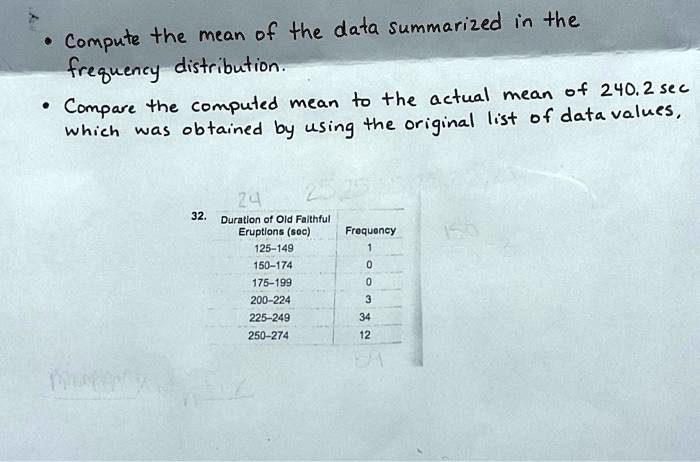 • Compute the mean of the data summarized in the
frequency distribution.
• Compare the computed mean to the actual mean of 240.2 sec
which was obtained by using the original list of data values,
24
32. Duration of Old Faithful
Eruptions (sec) Frequency
125–149 1
150–174 0
175–199 0
200–224 3
225–249 34
250–274 12